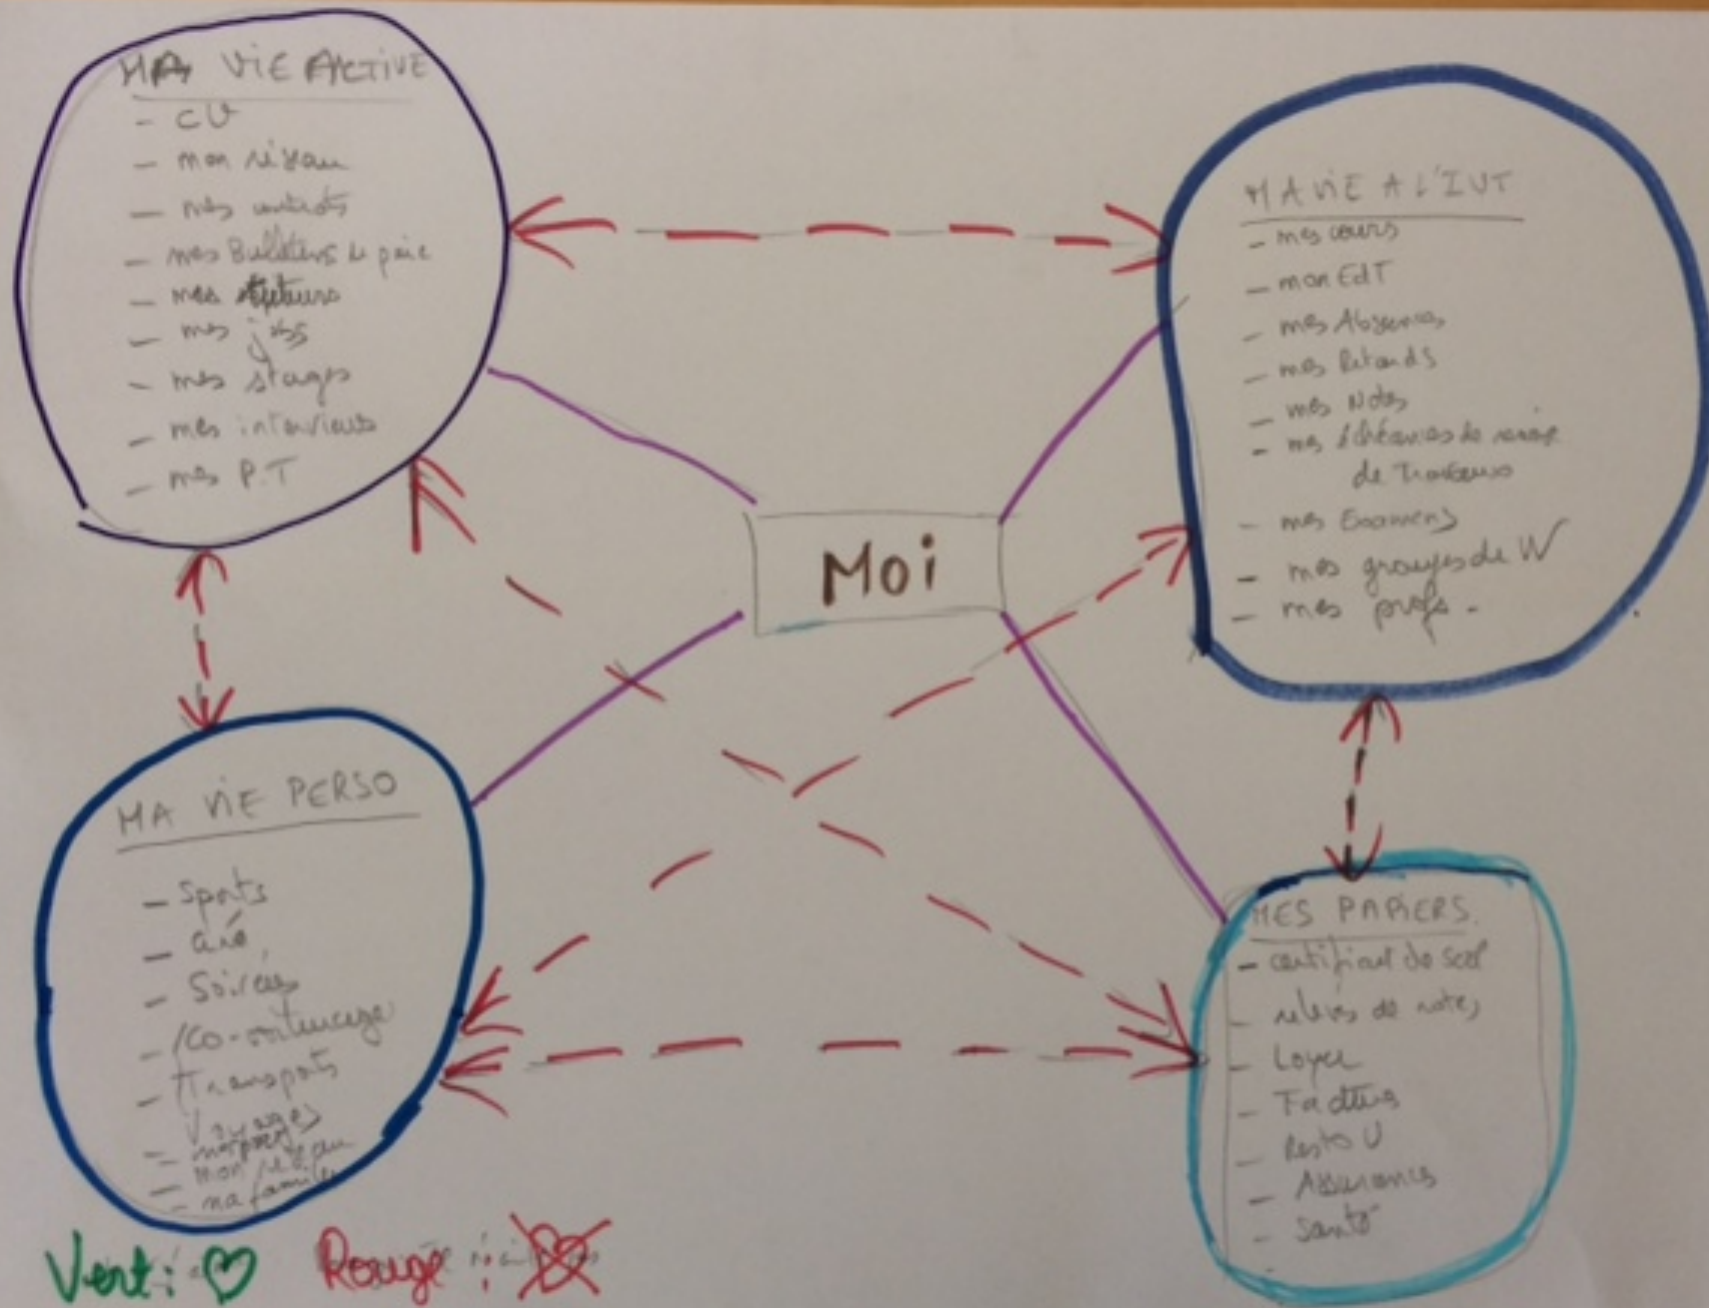 MA VIE ACTIVE
- CV
- mon réseau
- mes contrats
- mes Bulletins de paie
- mes tuteurs
- mes jobs
- mes stages
- mes interviews
- mes P.T
MA VIE A L'IUT
- mes cours
- mon EdT
- mes Absences
- mes Retards
- mes Notes
- mes échéances de remise
de Travaux
- mes Examens
- mes groupes de W
- mes profs.
Moi
MA VIE PERSO
- Sports
- ciné
- Soirées
- Co-voiturage
- Transports
Voyages
- mon réseau
- ma famille
MES PAPIERS.
- certificat de scol
- relevés de notes
- Loyer
- Factures
- Resto U
- Assurances
- Santé
Vert : Rouge :